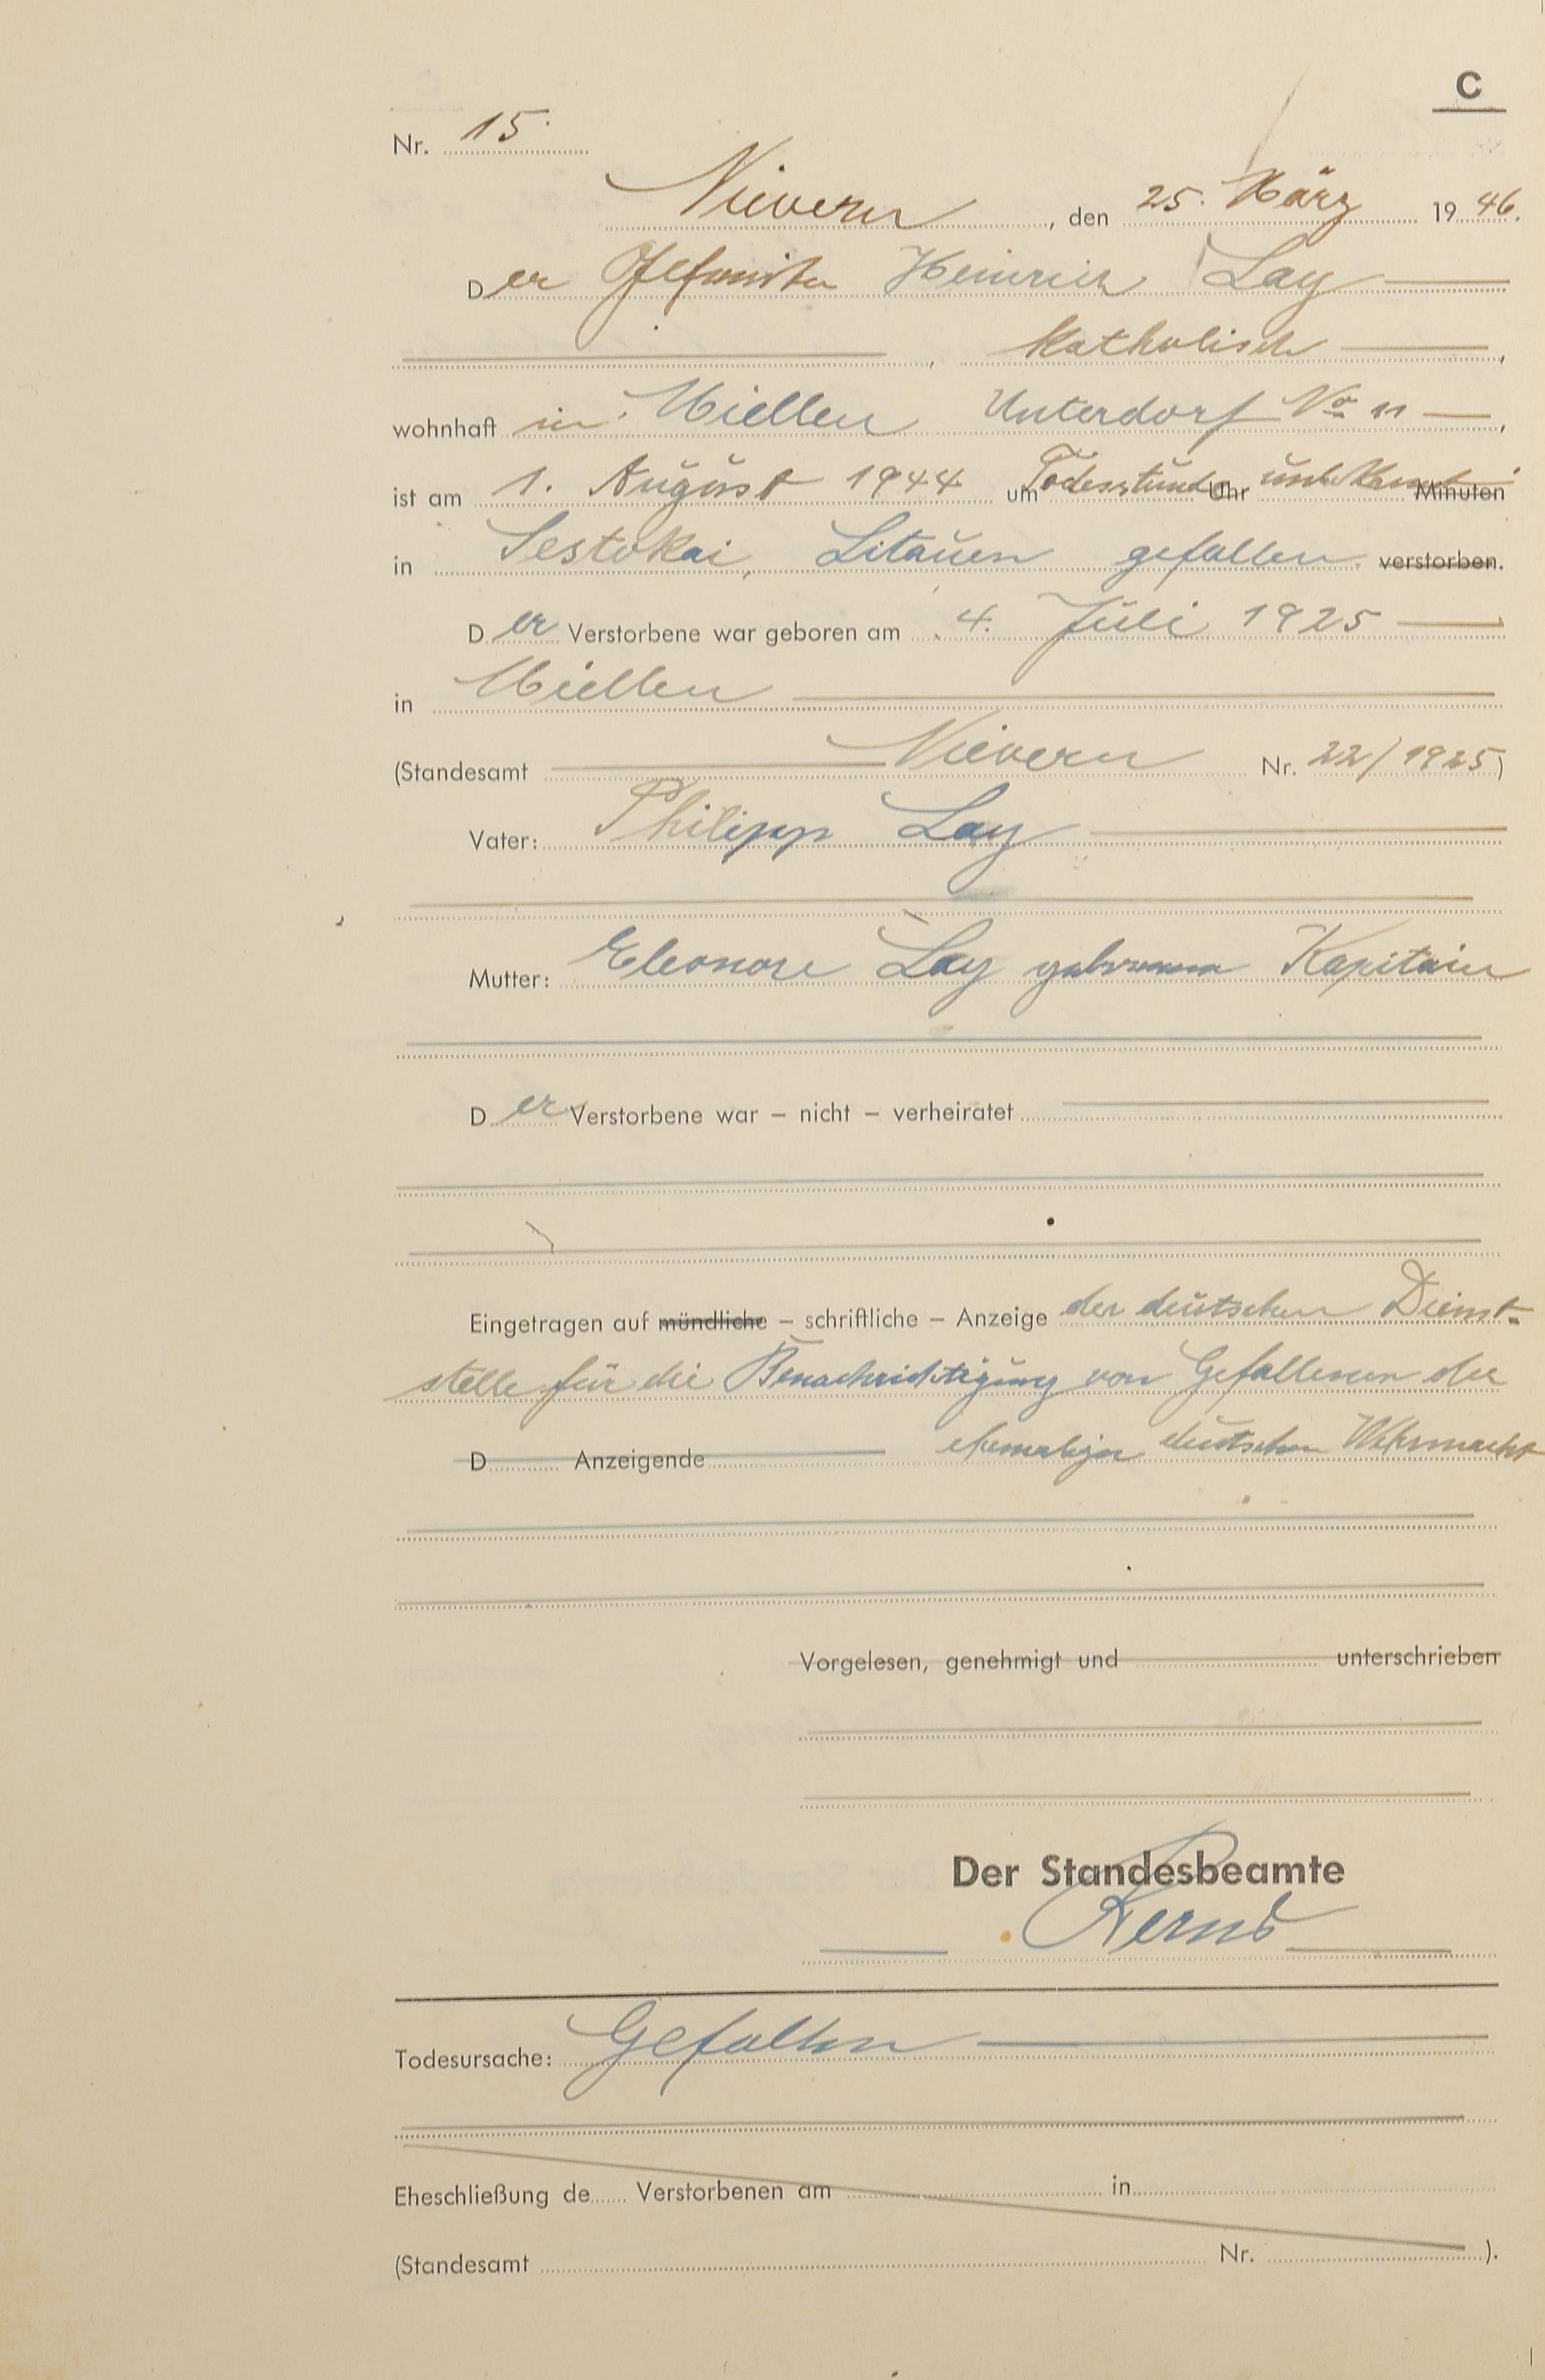 C
Nr. 15.
Nievern, den 25. März 1946.
Der Gefreiter Heinrich Lay
, katholisch,
wohnhaft in Miellen Unterdorf No 11,
ist am 1. August 1944 um Todesstunde Uhr unbekannt Minuten
in Sestokai, Litauen gefallen verstorben.
Der Verstorbene war geboren am 4. Juli 1925
in Miellen
(Standesamt Nievern Nr. 22/1925)
Vater: Philipp Lay
Mutter: Eleonore Lay geborene Kapitain
Der Verstorbene war – nicht – verheiratet
Eingetragen auf mündliche – schriftliche – Anzeige der deutschen Dienst-
stelle für die Benachrichtigung von Gefallenen der
D Anzeigende ehemaligen deutschen Wehrmacht
Vorgelesen, genehmigt und unterschrieben
Der Standesbeamte
Todesursache: Gefallen
Eheschließung de Verstorbenen am in
(Standesamt Nr. ).